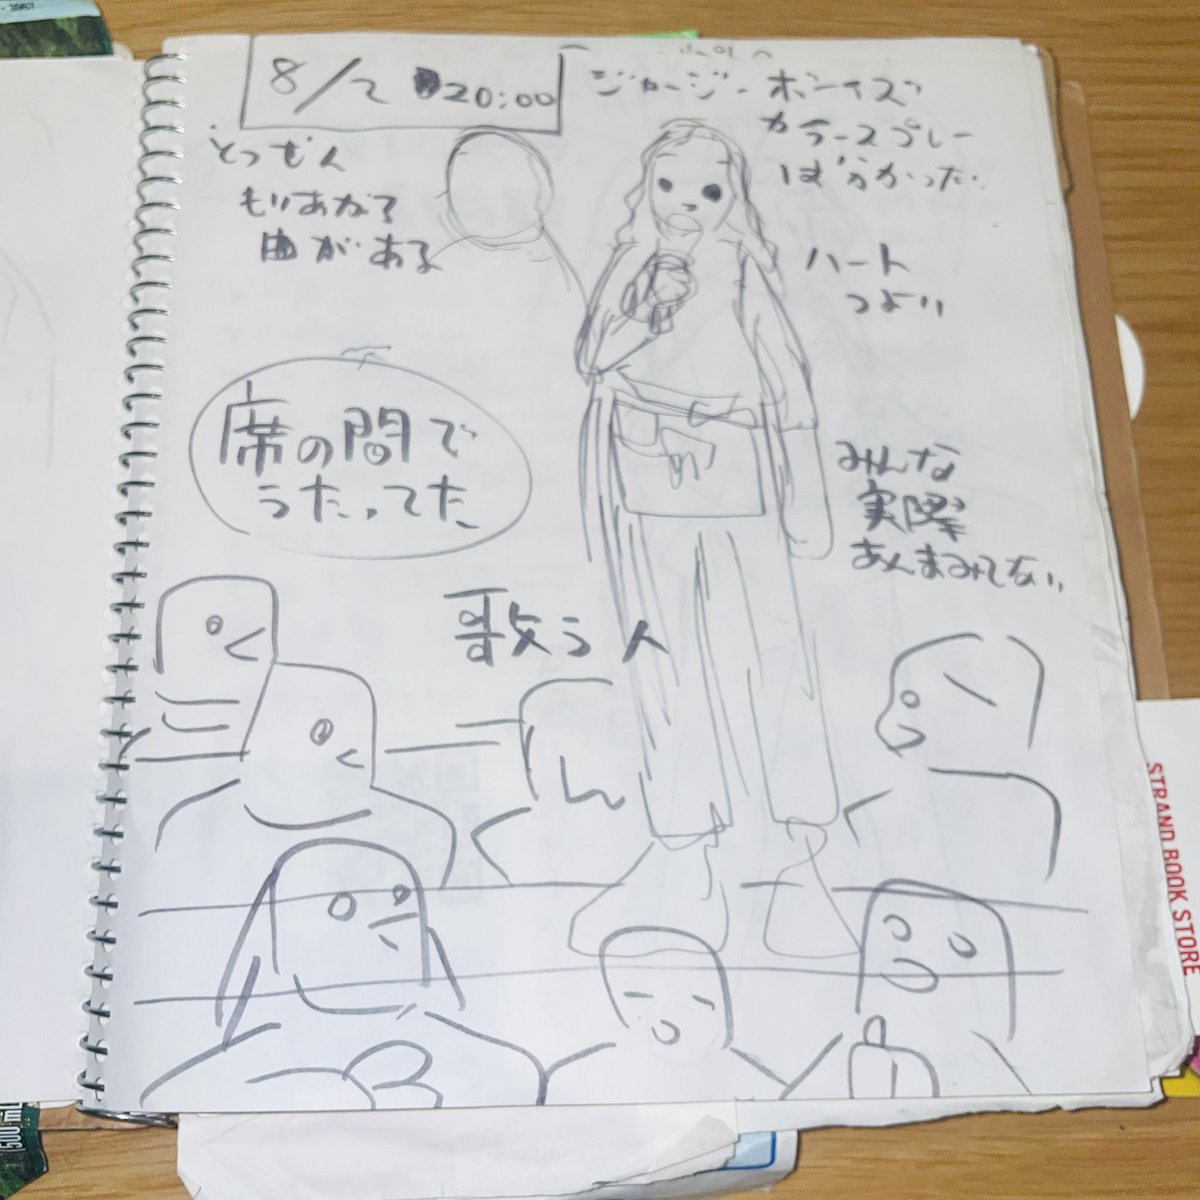 8/2 20:00
ジャージーボーイズ
カラースプレー
は分かった
とつぜん
もりあがる
曲がある
ハート
つよい
席の間で
うたってた
みんな
実際
あんまみてない
歌う人
STRAND BOOK STORE
(500 mL